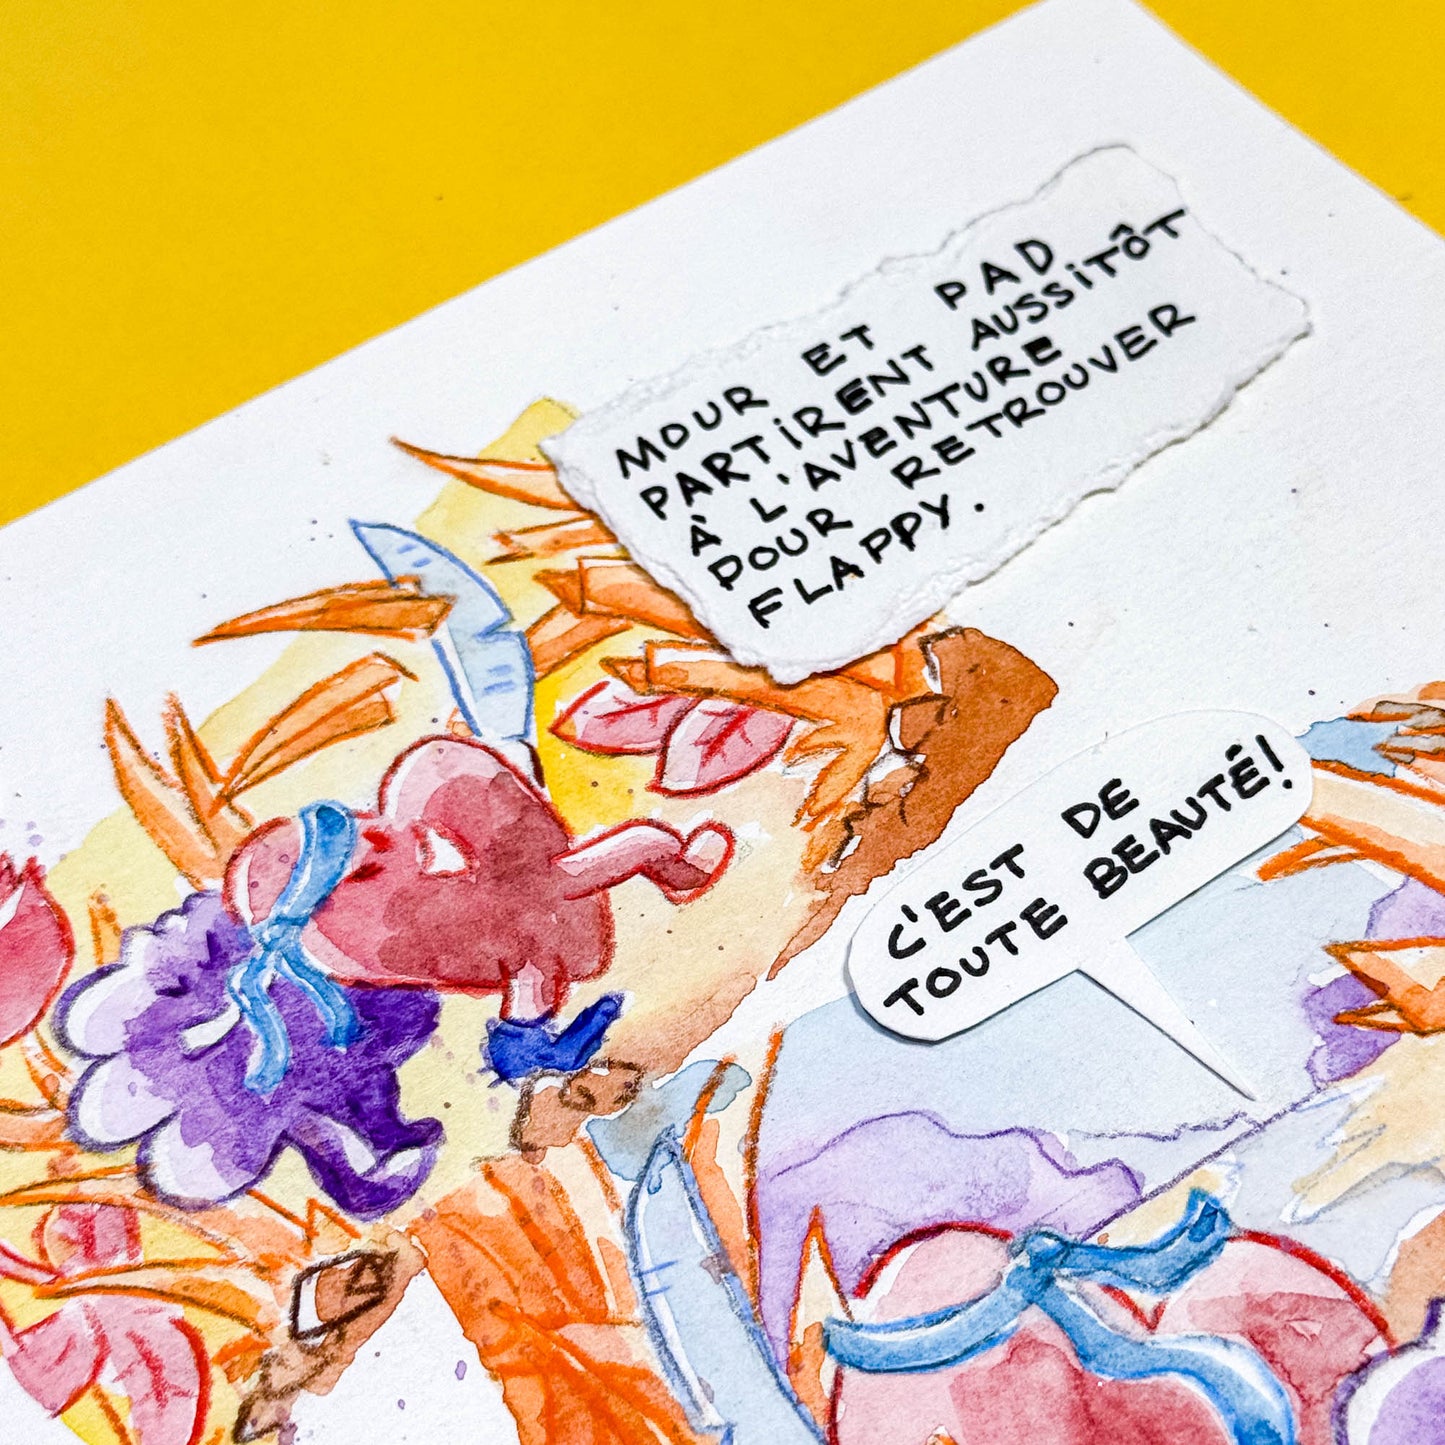 MOUR ET PAD
PARTIRENT AUSSITÔT
À L'AVENTURE
POUR RETROUVER
FLAPPY.
C'EST DE
TOUTE BEAUTÉ!